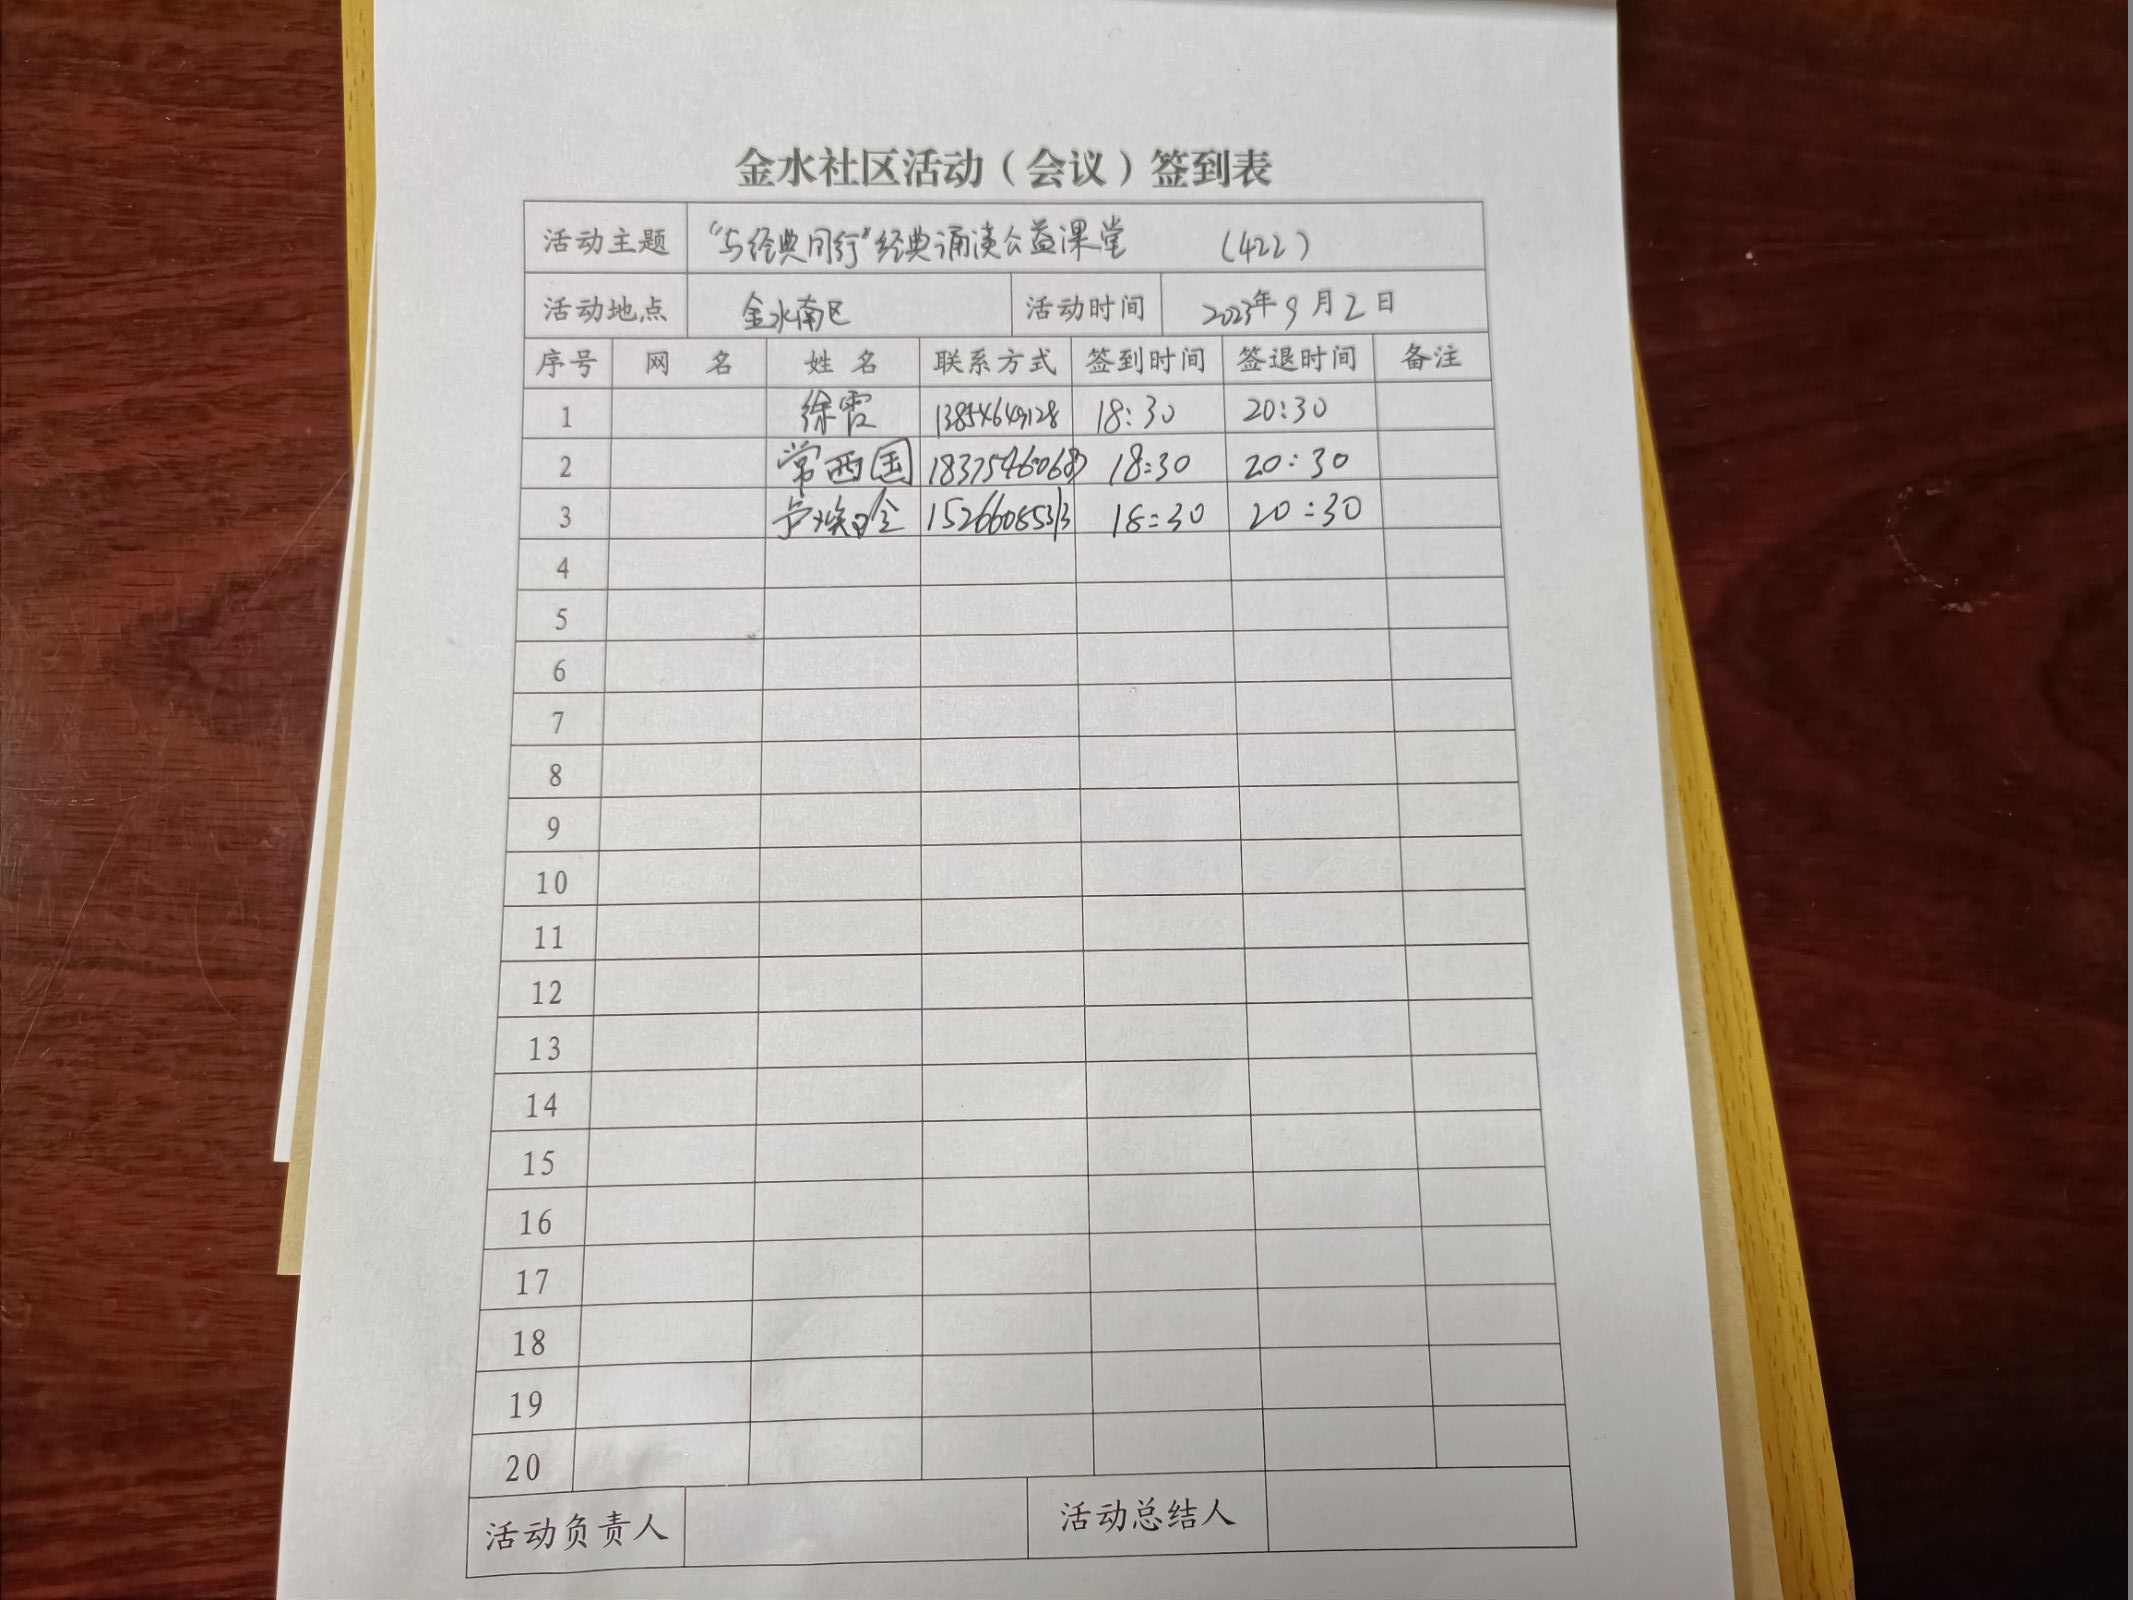 金水社区活动（会议）签到表
活动主题 “与经典同行”经典诵读公益课堂 （422）
活动地点 金水南区 活动时间 2023年9月2日
序号 网 名 姓 名 联系方式 签到时间 签退时间 备注
1 徐霞 18:30 20:30
2 常西国 18:30 20:30
3 18:30 20:30
4
5
6
7
8
9
10
11
12
13
14
15
16
17
18
19
20
活动负责人 活动总结人